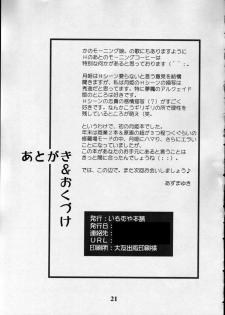 かのモーニング娘。の歌にもありますように
Ｈのあとのモーニングコーヒーは
特別な何かがあると思っております（＾＾；．
月姫はＨシーン要らないと言う意見を結構
聞きますが、私は月姫のＨシーンは
秀逸だと思ってます。特に夢魔のアルクェイド
の所は好きです。
Ｈシーンの志貴の極悪非道（？）がすごく
好きです。なんかこうギリギリの所で理性を
残しているところが萌え（笑）
というわけで、初の月姫本でした。
年末は商業２本＆原画の紙が３つくらいの
修羅場モードの中で、月姫にハマり、さらにエライ
ことなっていましたが、
この本があなたのお手元にあると言うことは
きっと間に合ったんでしょうね（；；）．
では、この辺で。また次回お会いしましょう♪
あずまゆき
あとがき＆おくづけ
発行：いちむや本舗
発行日：
連絡先：
ＵＲＬ：
印刷機：大友出版印刷様
21